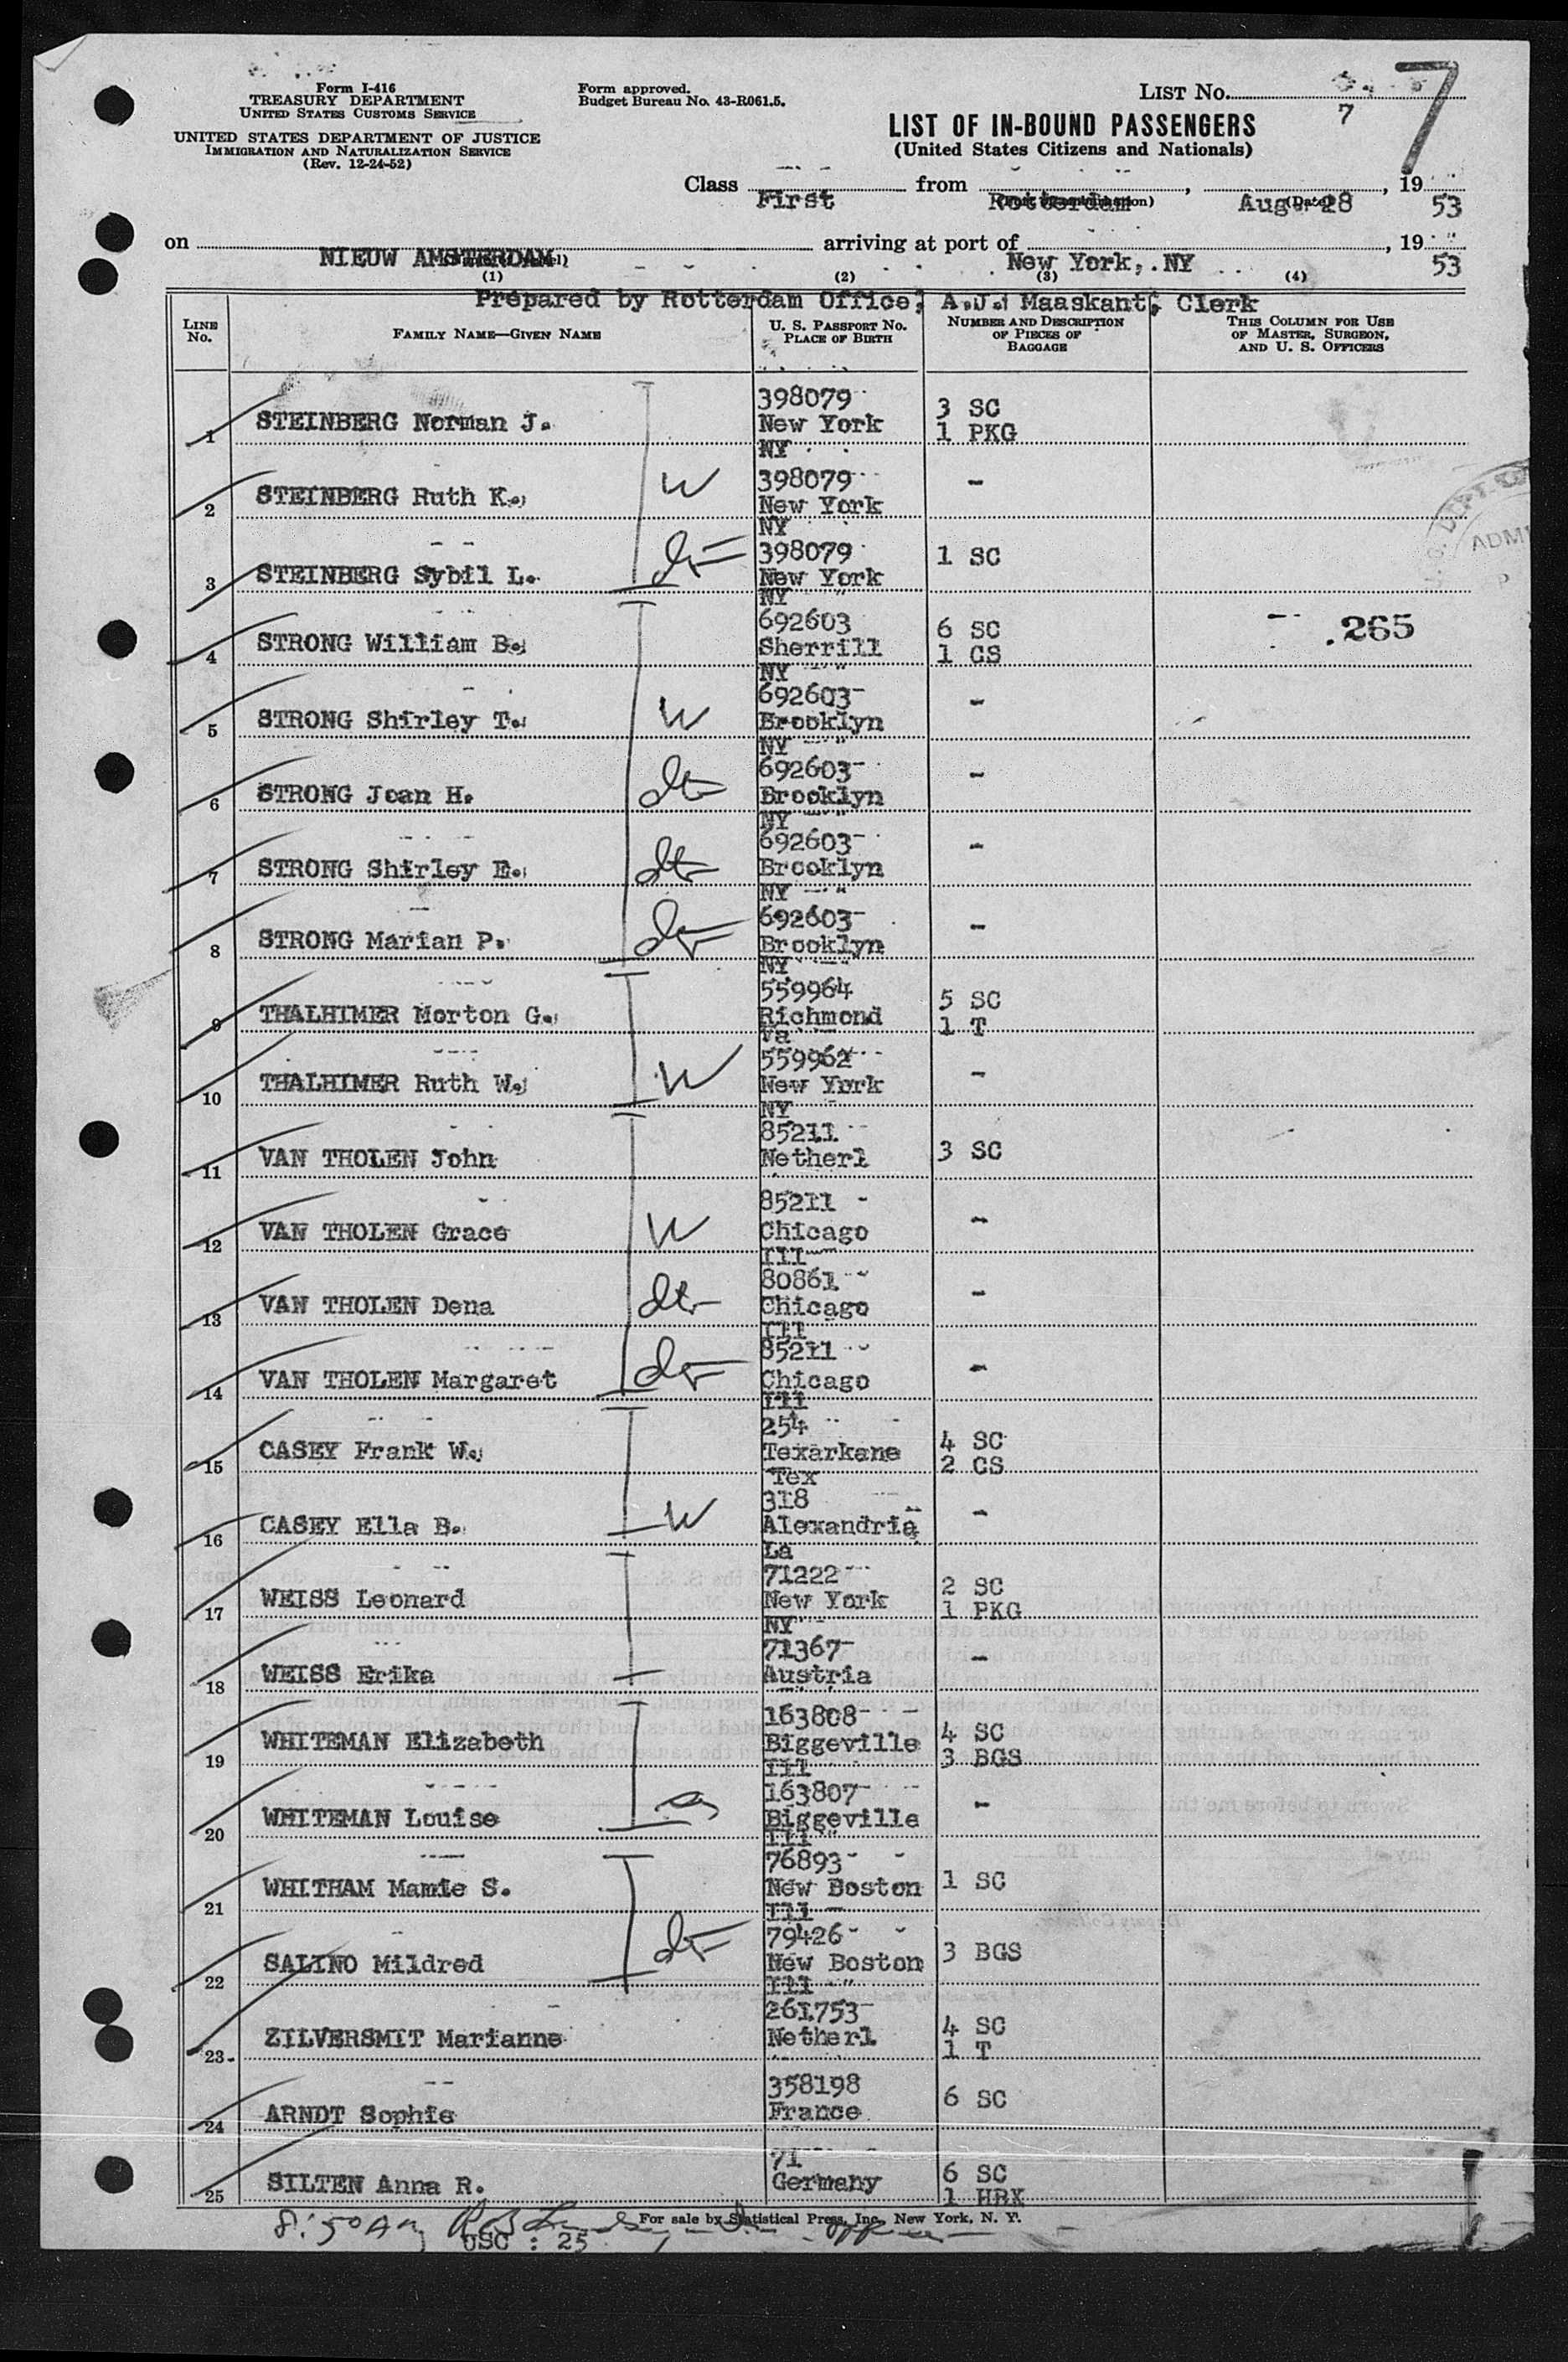 Form I-416
TREASURY DEPARTMENT
UNITED STATES CUSTOMS SERVICE
UNITED STATES DEPARTMENT OF JUSTICE
IMMIGRATION AND NATURALIZATION SERVICE
(Rev. 12-24-52)
Form approved.
Budget Bureau No. 43-R061.5.
LIST No. 7
7
LIST OF IN-BOUND PASSENGERS
(United States Citizens and Nationals)
Class First from Rotterdam, Aug. 28, 1953
on NIEUW AMSTERDAM arriving at port of New York, NY, 1953
(1) (2) (3) (4)
Prepared by Rotterdam Office, A.J. Maaskant, Clerk
LINE No. FAMILY NAME—GIVEN NAME U. S. PASSPORT No. PLACE OF BIRTH NUMBER AND DESCRIPTION OF PIECES OF BAGGAGE THIS COLUMN FOR USE OF MASTER, SURGEON, AND U. S. OFFICERS
1 STEINBERG Norman J. 398079 New York NY 3 SC 1 PKG
2 STEINBERG Ruth K. W 398079 New York NY -
3 STEINBERG Sybil L. dtr 398079 New York NY 1 SC
4 STRONG William B. 692603 Sherrill NY 6 SC 1 CS .265
5 STRONG Shirley T. W 692603 Brooklyn NY -
6 STRONG Jean H. dtr 692603 Brooklyn NY -
7 STRONG Shirley E. dtr 692603 Brooklyn NY -
8 STRONG Marian P. dtr 692603 Brooklyn NY -
9 THALHIMER Morton G. 559964 Richmond Va 5 SC 1 T
10 THALHIMER Ruth W. W 559962 New York NY -
11 VAN THOLEN John 85211 Netherl 3 SC
12 VAN THOLEN Grace W 85211 Chicago Ill -
13 VAN THOLEN Dena dtr 80861 Chicago Ill -
14 VAN THOLEN Margaret dtr 85211 Chicago Ill -
15 CASEY Frank W. 254 Texarkane Tex 4 SC 2 CS
16 CASEY Ella B. W 318 Alexandria La -
17 WEISS Leonard 71222 New York NY 2 SC 1 PKG
18 WEISS Erika 71367 Austria -
19 WHITEMAN Elizabeth 163808 Biggeville Ill 4 SC 3 BGS
20 WHITEMAN Louise 163807 Biggeville Ill -
21 WHITHAM Mamie S. 76893 New Boston Ill 1 SC
22 SALINO Mildred dtr 79426 New Boston Ill 3 BGS
23 ZILVERSMIT Marianne 261753 Netherl 4 SC 1 T
24 ARNDT Sophie 358198 France 6 SC
25 SILTEN Anna R. 71 Germany 6 SC 1 HRX
For sale by Statistical Press, Inc., New York, N. Y.
8:50 AM
USC : 25